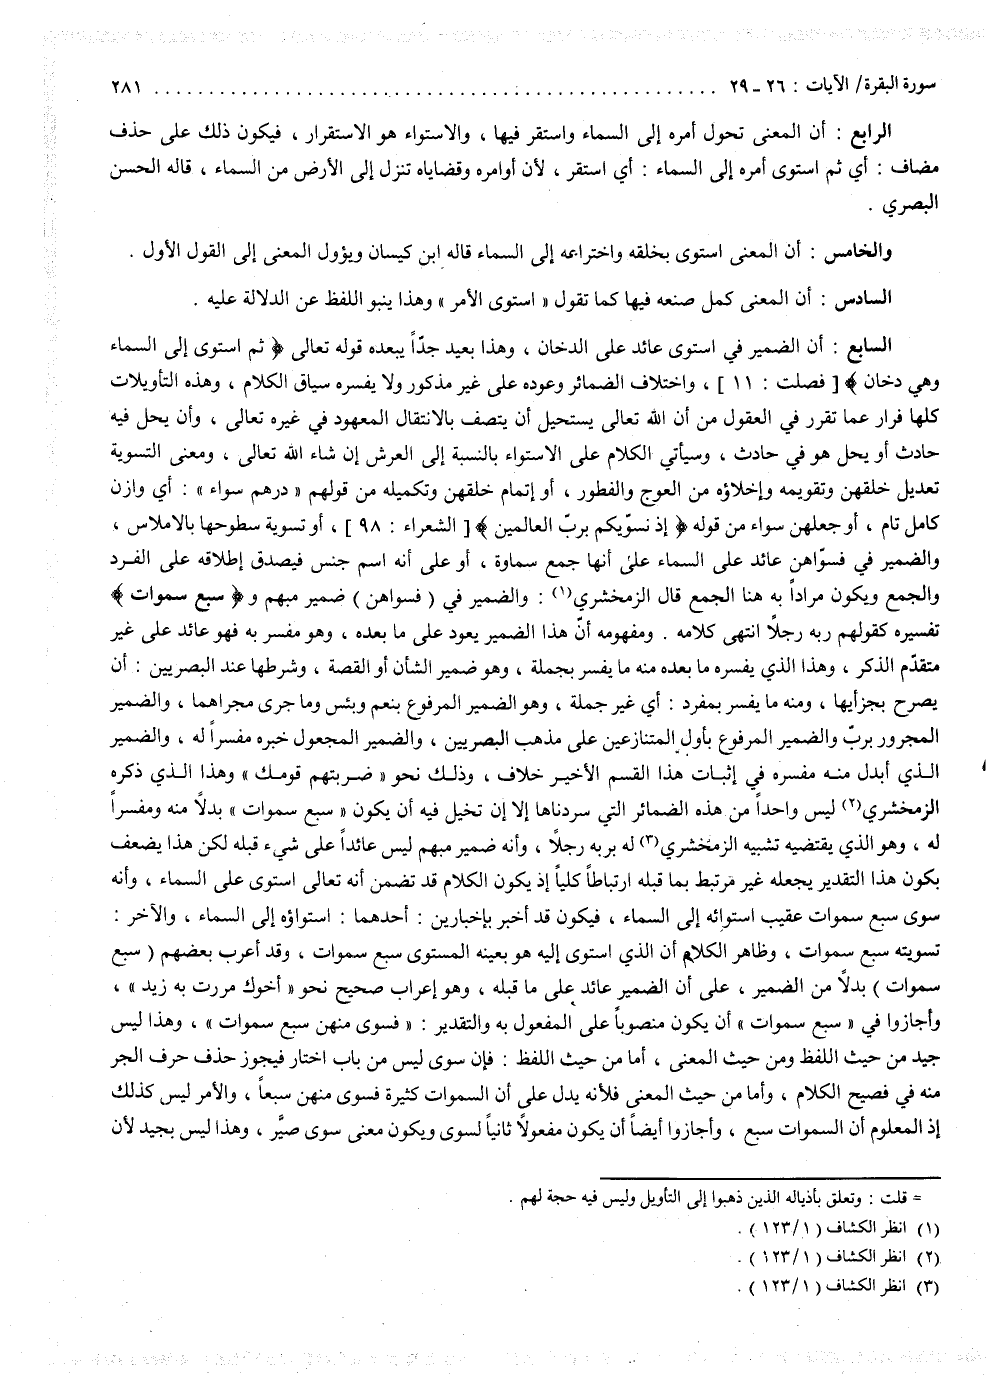 سورة البقرة/ الآيات : ٢٦ ـ ٢٩ . . . . . . . . . . . . . . . . . . . . . . . . . . . . . . . . . . . . . . . . . . . . . . . . . . . . ٢٨١
الرابع : أن المعنى تحول أمره إلى السماء واستقر فيها ، والاستواء هو الاستقرار ، فيكون ذلك على حذف
مضاف : أي ثم استوى أمره إلى السماء : أي استقر ، لأن أوامره وقضاياه تنزل إلى الأرض من السماء ، قاله الحسن
البصري .
والخامس : أن المعنى استوى بخلقه واختراعه إلى السماء قاله ابن كيسان ويؤول المعنى إلى القول الأول .
السادس : أن المعنى كمل صنعه فيها كما تقول « استوى الأمر » وهذا ينبو اللفظ عن الدلالة عليه .
السابع : أن الضمير في استوى عائد على الدخان ، وهذا بعيد جدّاً يبعده قوله تعالى ﴿ ثم استوى إلى السماء
وهي دخان ﴾ [ فصلت : ١١ ] ، واختلاف الضمائر وعوده على غير مذكور ولا يفسره سياق الكلام ، وهذه التأويلات
كلها فرار عما تقرر في العقول من أن الله تعالى يستحيل أن يتصف بالانتقال المعهود في غيره تعالى ، وأن يحل فيه
حادث أو يحل هو في حادث ، وسيأتي الكلام على الاستواء بالنسبة إلى العرش إن شاء الله تعالى ، ومعنى التسوية
تعديل خلقهن وتقويمه وإخلاؤه من العوج والفطور ، أو إتمام خلقهن وتكميله من قولهم « درهم سواء » : أي وازن
كامل تام ، أو جعلهن سواء من قوله ﴿ إذ نسوّيكم بربّ العالمين ﴾ [ الشعراء : ٩٨ ] ، أو تسوية سطوحها بالاملاس ،
والضمير في فسوّاهن عائد على السماء على أنها جمع سماوة ، أو على أنه اسم جنس فيصدق إطلاقه على الفرد
والجمع ويكون مراداً به هنا الجمع قال الزمخشري(١) : والضمير في ( فسواهن ) ضمير مبهم و ﴿ سبع سموات ﴾
تفسيره كقولهم ربه رجلًا انتهى كلامه . ومفهومه أنّ هذا الضمير يعود على ما بعده ، وهو مفسر به فهو عائد على غير
متقدّم الذكر ، وهذا الذي يفسره ما بعده منه ما يفسر بجملة ، وهو ضمير الشأن أو القصة ، وشرطها عند البصريين : أن
يصرح بجزأيها ، ومنه ما يفسر بمفرد : أي غير جملة ، وهو الضمير المرفوع بنعم وبئس وما جرى مجراهما ، والضمير
المجرور بربّ والضمير المرفوع بأول المتنازعين على مذهب البصريين ، والضمير المجعول خبره مفسراً له ، والضمير
الذي أبدل منه مفسره في إثبات هذا القسم الأخير خلاف ، وذلك نحو « ضربتهم قومك » وهذا الذي ذكره
الزمخشري(٢) ليس واحداً من هذه الضمائر التي سردناها إلا إن تخيل فيه أن يكون « سبع سموات » بدلًا منه ومفسراً
له ، وهو الذي يقتضيه تشبيه الزمخشري(٣) له بربه رجلًا ، وأنه ضمير مبهم ليس عائداً على شيء قبله لكن هذا يضعف
بكون هذا التقدير يجعله غير مرتبط بما قبله ارتباطاً كلياً إذ يكون الكلام قد تضمن أنه تعالى استوى على السماء ، وأنه
سوى سبع سموات عقيب استوائه إلى السماء ، فيكون قد أخبر بإخبارين : أحدهما : استواؤه إلى السماء ، والآخر :
تسويته سبع سموات ، وظاهر الكلام أن الذي استوى إليه هو بعينه المستوى سبع سموات ، وقد أعرب بعضهم ( سبع
سموات ) بدلًا من الضمير ، على أن الضمير عائد على ما قبله ، وهو إعراب صحيح نحو « أخوك مررت به زيد » ،
وأجازوا في « سبع سموات » أن يكون منصوباً على المفعول به والتقدير : « فسوى منهن سبع سموات » ، وهذا ليس
جيد من حيث اللفظ ومن حيث المعنى ، أما من حيث اللفظ : فإن سوى ليس من باب اختار فيجوز حذف حرف الجر
منه في فصيح الكلام ، وأما من حيث المعنى فلأنه يدل على أن السموات كثيرة فسوى منهن سبعاً ، والأمر ليس كذلك
إذ المعلوم أن السموات سبع ، وأجازوا أيضاً أن يكون مفعولًا ثانياً لسوى ويكون معنى سوى صيَّر ، وهذا ليس بجيد لأن
= قلت : وتعلق بأذياله الذين ذهبوا إلى التأويل وليس فيه حجة لهم .
(١) انظر الكشاف ( ١/ ١٢٣ ) .
(٢) انظر الكشاف ( ١/ ١٢٣ ) .
(٣) انظر الكشاف ( ١/ ١٢٣ ) .